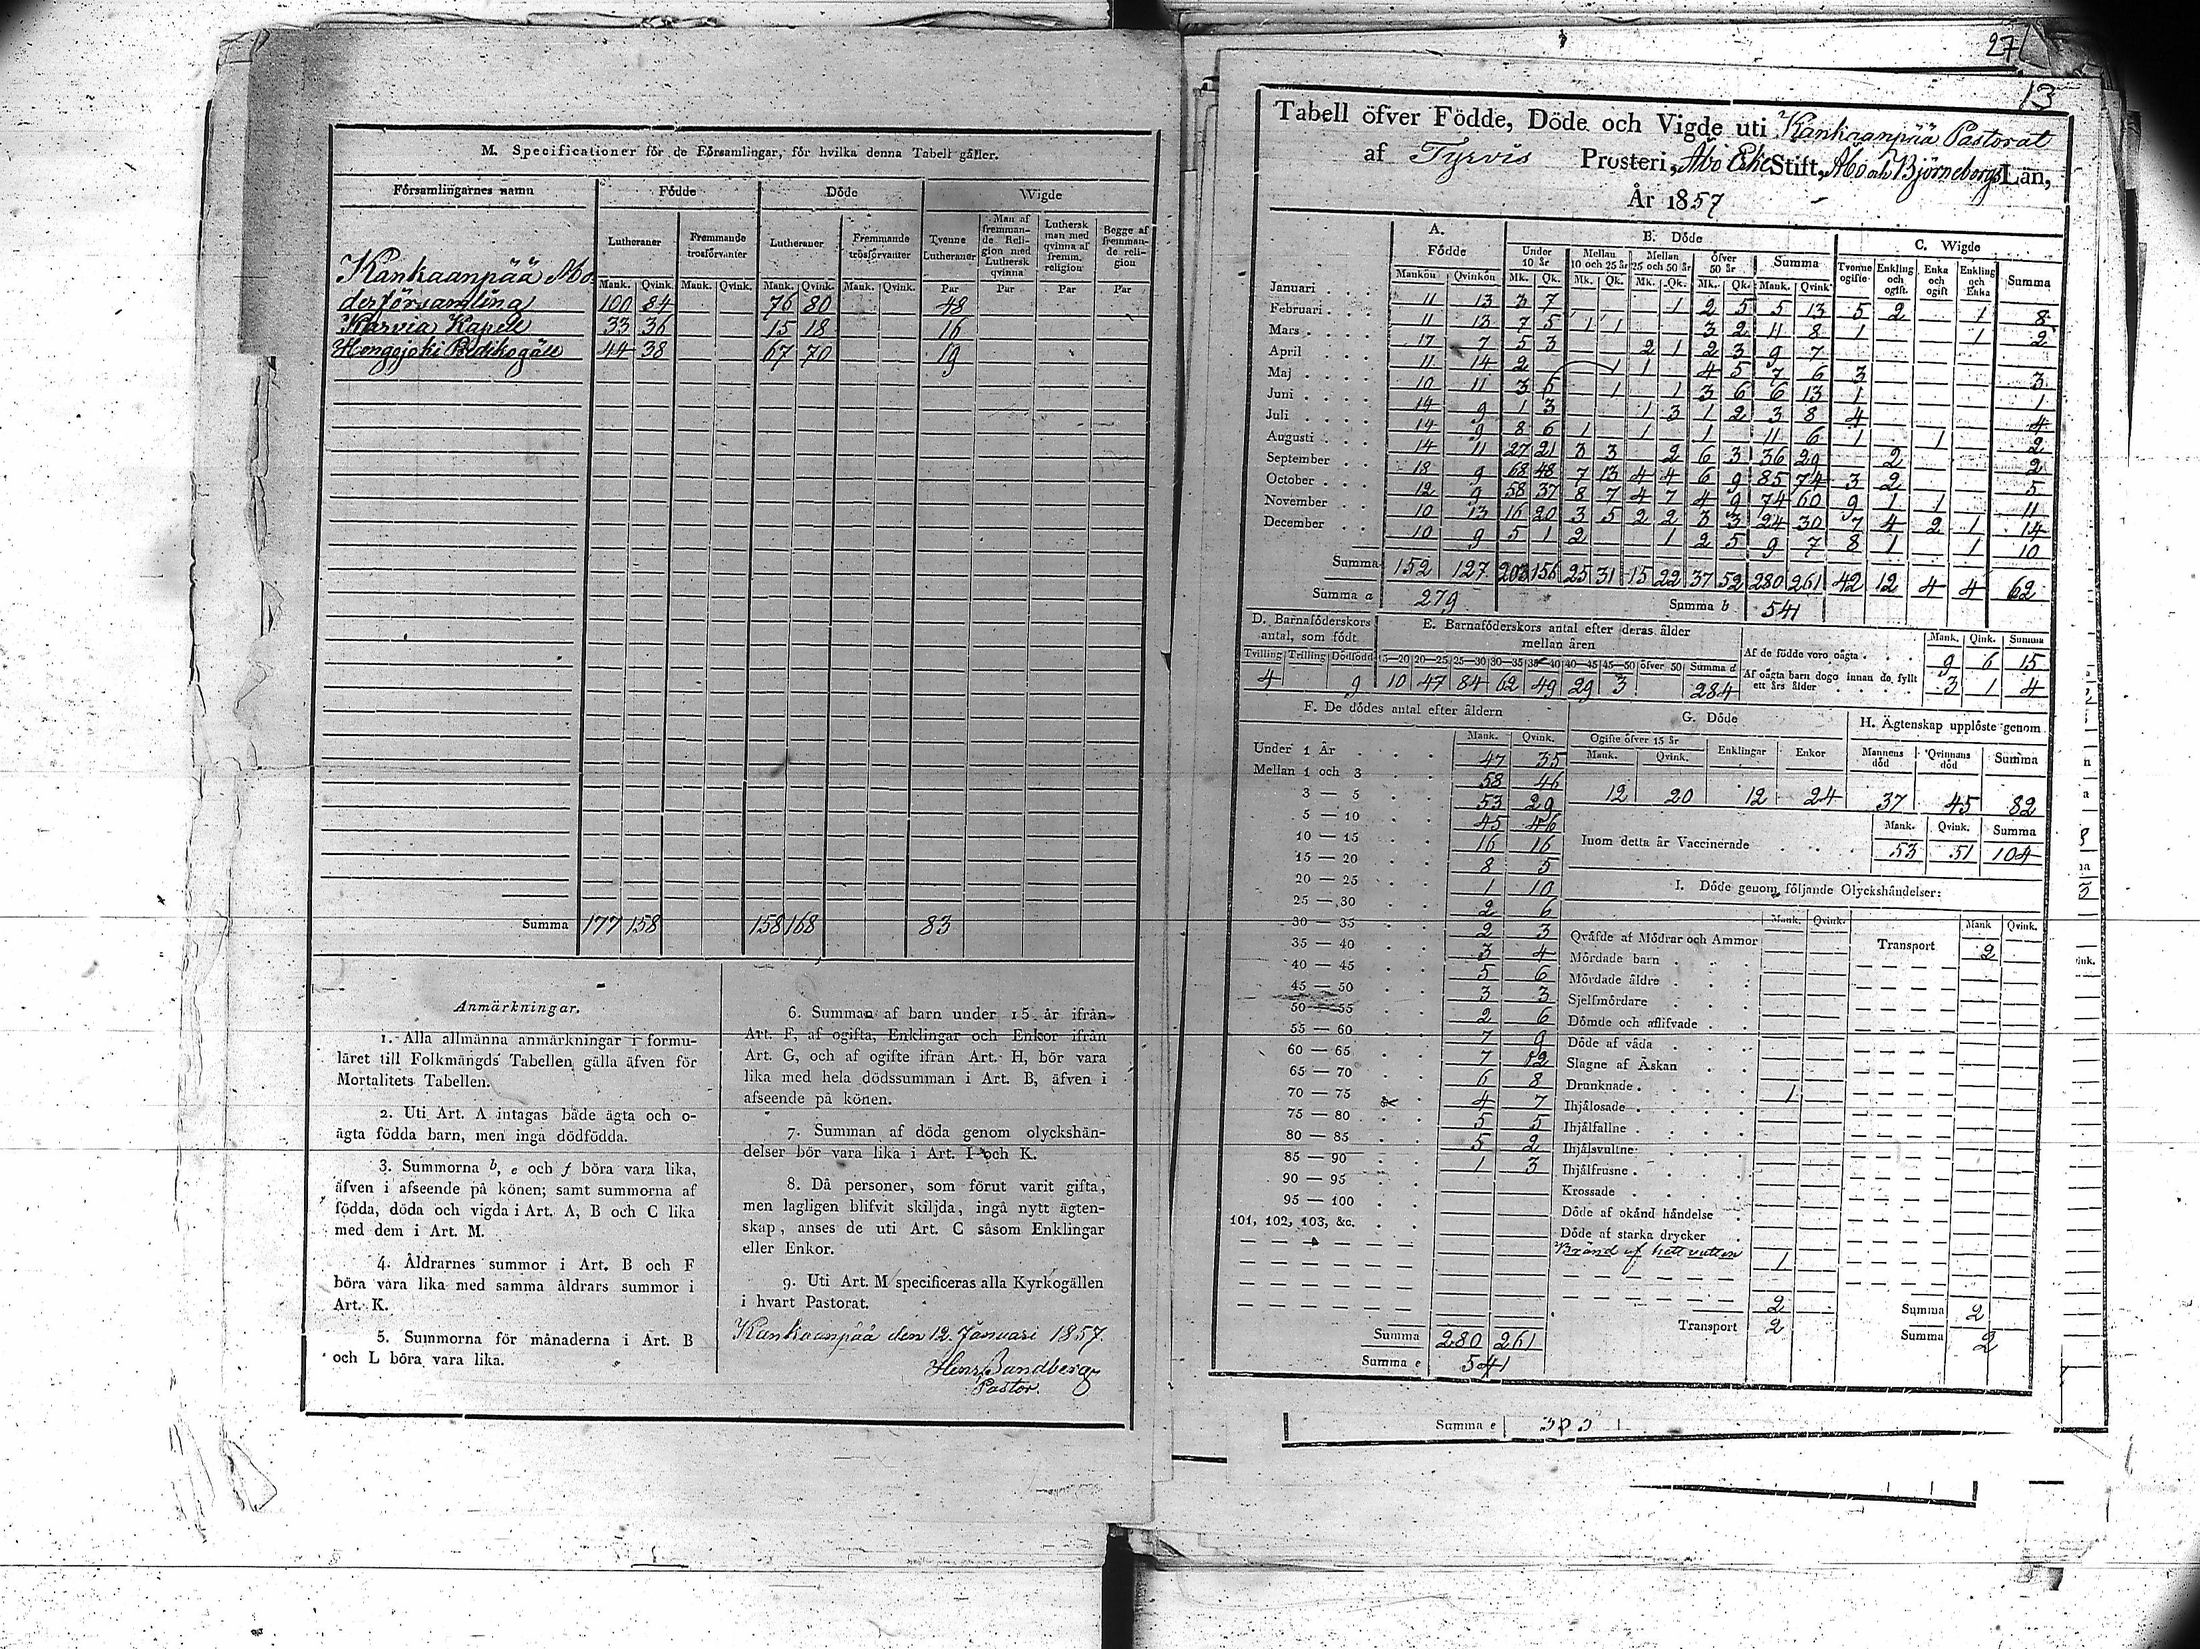 M. Specificationer för de Församlingar, för hvilka denna Tabell gäller.
Församlingarnes namn Födde Döde Wigde
Lutheraner Fremmande trosförvanter Lutheraner Fremmande trosförvanter Tvenne Lutheraner Man af fremmande Religion med Luthersk qvinna Luthersk man med qvinna af fremm. religion Begge af fremmande religion
Mank. Qvink. Mank. Qvink. Mank. Qvink. Mank. Qvink. Par Par Par Par
Kankaanpää Mo
derförsamling 100 84 76 80 48
Karvia Kapell 33 36 15 18 16
Hongojoki 44 38 67 70 19
Summa 177 158 158 168 83
Anmärkningar.
1. Alla allmänna anmärkningar i formu-
läret till Folkmängds Tabellen gälla äfven för
Mortalitets Tabellen.
2. Uti Art. A intagas både ägta och o-
ägta födda barn, men inga dödfödda.
3. Summorna b, e och f böra vara lika,
äfven i afseende på könen; samt summorna af
födda, döda och vigda i Art. A, B och C lika
med dem i Art. M.
4. Åldrarnes summor i Art. B och F
böra vara lika med samma åldrars summor i
Art. K.
5. Summorna för månaderna i Art. B
och L böra vara lika.
6. Summan af barn under 15 år ifrån
Art. F, af ogifta, Enklingar och Enkor ifrån
Art. G, och af ogifte ifrån Art. H, bör vara
lika med hela dödssumman i Art. B, äfven i
afseende på könen.
7. Summan af döda genom olyckshän-
delser bör vara lika i Art. I och K.
8. Då personer, som förut varit gifta,
men lagligen blifvit skiljda, ingå nytt ägten-
skap, anses de uti Art. C såsom Enklingar
eller Enkor.
9. Uti Art. M specificeras alla Kyrkogällen
i hvart Pastorat.
Kankaanpää den 12 Januari 1857
Pastor.
27
13
Tabell öfver Födde, Döde och Vigde uti Kankaanpää Pastorat
af Tyrvis Prosteri, Åbo Erke Stift, Åbo och Björneborgs Län,
År 1857
A. Födde B. Döde C. Wigde
Mankön Qvinkön Under 10 år Mellan 10 och 25 år Mellan 25 och 50 år Öfver 50 år Summa Tvenne ogifte Enkling och ogift. Enka och ogift Enkling och Enka Summa
Mk. Qk. Mk. Qk. Mk. Qk. Mk. Qk. Mank. Qvink.
Januari 11 13 3 7 1 2 5 5 13 5 2 1 8
Februari 11 13 7 5 1 1 3 2 11 8 1 1 2
Mars 17 7 5 3 2 1 2 3 9 7
April 11 14 2 1 1 4 5 7 6 3 3
Maj 10 11 3 5 1 1 3 6 6 13 1 1
Juni 14 9 1 3 1 3 1 2 3 8 4 4
Juli 14 9 8 6 1 1 1 11 6 1 1 2
Augusti 14 11 27 21 3 3 2 6 3 36 29 2 2
September 18 9 68 48 7 13 4 4 6 9 85 74 3 2 5
October 12 9 58 37 8 7 4 7 4 9 74 60 9 1 1 11
November 10 13 16 20 3 5 2 2 3 3 24 30 7 4 2 1 14
December 10 9 5 1 2 1 2 5 9 7 8 1 1 10
Summa 152 127 203 156 25 31 15 22 37 52 280 261 42 12 4 4 62
Summa a 279 Summa b 541
D. Barnaföderskors antal, som födt E. Barnaföderskors antal efter deras ålder mellan åren Mank. Qink. Summa
Tvilling Trilling Dödfödd 15—20 20—25 25—30 30—35 35—40 40—45 45—50 öfver 50 Summa d
4 9 10 47 84 62 49 29 3 284
Af de födde voro oägta 9 6 15
Af oägta barn dogo innan de fyllt ett års ålder 3 1 4
F. De dödes antal efter åldern
Mank. Qvink.
Under 1 År 47 35
Mellan 1 och 3 58 46
3 — 5 53 29
5 — 10 45 46
10 — 15 16 16
15 — 20 8 5
20 — 25 1 10
25 — 30 2 6
30 — 35 2 3
35 — 40 3 4
40 — 45 5 6
45 — 50 3 3
50 — 55 2 6
55 — 60 7 9
60 — 65 7 12
65 — 70 6 8
70 — 75 4 7
75 — 80 5 5
80 — 85 5 2
85 — 90 1 3
90 — 95
95 — 100
101, 102, 103, &c.
Summa 280 261
Summa e 541
G. Döde
Ogifte öfver 15 år Enklingar Enkor
Mank. Qvink.
12 20 12 24
H. Ägtenskap upplöste genom
Mannens död Qvinnans död Summa
37 45 82
Mank. Qvink. Summa
Inom detta år Vaccinerade 53 51 104
I. Döde genom följande Olyckshändelser:
Mank. Qvink. Mank Qvink.
Qväfde af Mödrar och Ammor Transport 2
Mördade barn
Mördade äldre
Sjelfmördare
Dömde och aflifvade
Döde af våda
Slagne af Åskan
Drunknade 1
Ihjälosade
Ihjälfallne
Ihjälsvultne
Ihjälfrusne
Krossade
Döde af okänd händelse
Döde af starka drycker
Bränd af hett vatten 1
2 Summa 2
Transport 2 Summa 2
Summa e